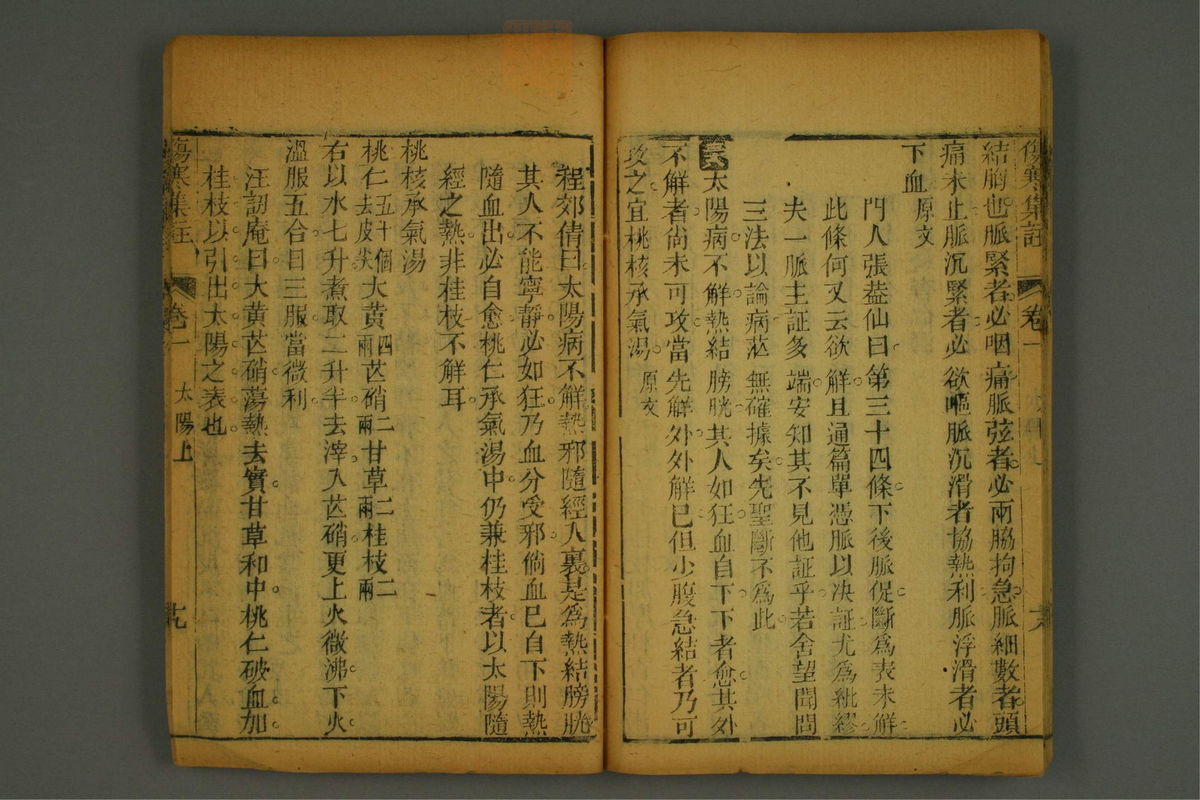 傷寒集註 卷一
結胸也脈緊者必咽痛脈弦者必兩脇拘急脈細數者頭
痛未止脈沉緊者必欲嘔脈沉滑者協熱利脈浮滑者必
下血原文
門人張藎仙曰第三十四條下後脈促斷爲表未解
此條何又云欲解且通篇單憑脈以决証尤爲紕繆
夫一脈主証多端安知其不見他証乎若舍望聞問
三法以論病茫無確據矣先聖斷不爲此
太陽病不解熱結膀胱其人如狂血自下下者愈其外
不解者尚未可攻當先解外外解已但少腹急結者乃可
攻之宜桃核承氣湯原文
程郊倩曰太陽病不解熱邪隨經入裏是爲熱結膀胱
其人不能寧静必如狂乃血分受邪倘血已自下則熱
隨血出必自愈桃仁承氣湯中仍兼桂枝者以太陽隨
經之熱非桂枝不解耳
桃核承氣湯
桃仁五十個去皮尖大黄四兩芒硝二兩甘草二兩桂枝二兩
右以水七升煮取二升半去滓入芒硝更上火微沸下火
溫服五合日三服當微利
汪訒庵曰大黄芒硝蕩熱去實甘草和中桃仁破血加
桂枝以引出太陽之表也
傷寒集註 卷一 太陽上 十九